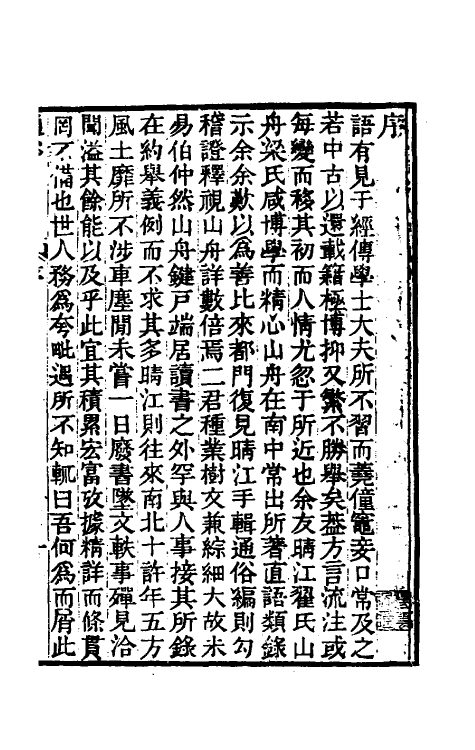 序
語有見于經傳學士大夫所不習而蕘僮竈妾口常及之
若中古以還載籍極博抑又繁不勝舉矣葢方言流注或
每變而移其初而人情尤忽于所近也余友晴江翟氏山
舟梁氏咸博學而精心山舟在南中常出所著直語類錄
示余余歎以爲善比來都門復見晴江手輯通俗編則勾
稽證釋視山舟詳數倍焉二君種業樹文兼綜細大故未
易伯仲然山舟鍵戸端居讀書之外罕與人事接其所錄
在約舉義例而不求其多晴江則往來南北十許年五方
風土靡所不涉車塵閒未嘗一日廢書墜文軼事殫見洽
聞溢其餘能以及乎此宜其積累宏富攷據精詳而條貫
罔不備也世人務爲夸毗遇所不知輒曰吾何爲而屑此